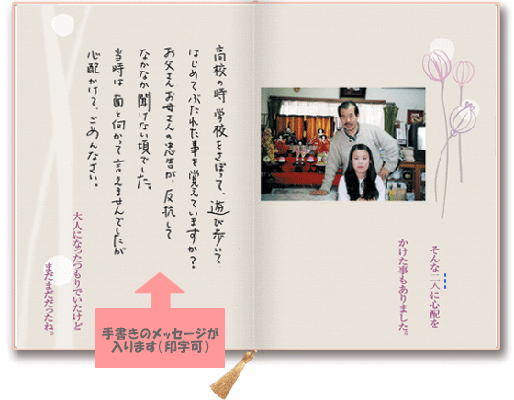 高校の時 学校をさぼって、遊び歩いて
はじめてぶたれた事を覚えていますか?
お父さんお母さんの忠告が、反抗して
なかなか聞けない頃でした。
当時は 面と向かって言えませんでしたが
心配かけて、ごめんなさい。
大人になったつもりでいたけど
まだまだだったね。
手書きのメッセージが
入ります(印字可)
そんな二人に心配を
かけた事もありました。